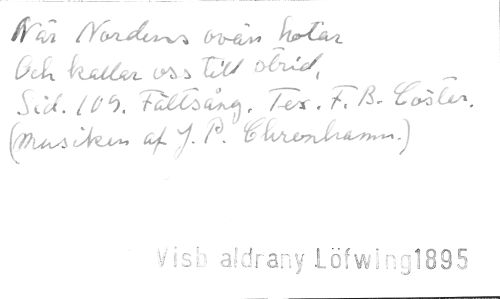 När Nordens ovän hotar
Och kallar oss till strid,
Sid. 109. Fältsång. Tex. F. B. Cöster.
(Musiken af J. P. Chronhamn.)
Visb aldrany Löfwing1895